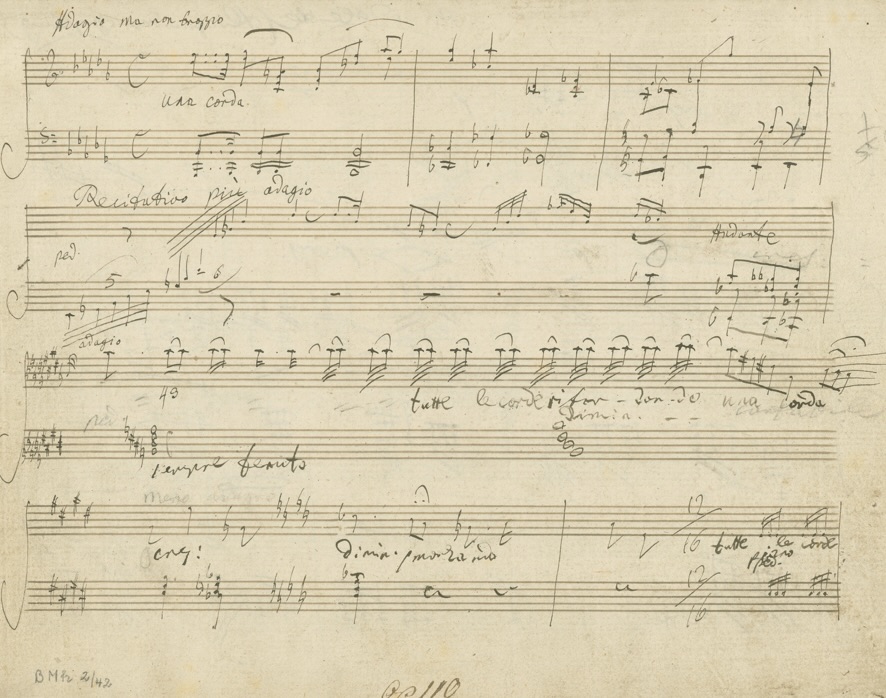 Adagio ma non troppo
una corda
Recitativo più adagio
Andante
ped.
5
6
adagio
43
tutte le corde rifor - zan - do una corda
dimin. - -
ped
sempre tenuto
meno adagio
12
16
tutte le corde
cresc:
dimin. smorzando
ped.
12
16
BMh 2/42
Op 110